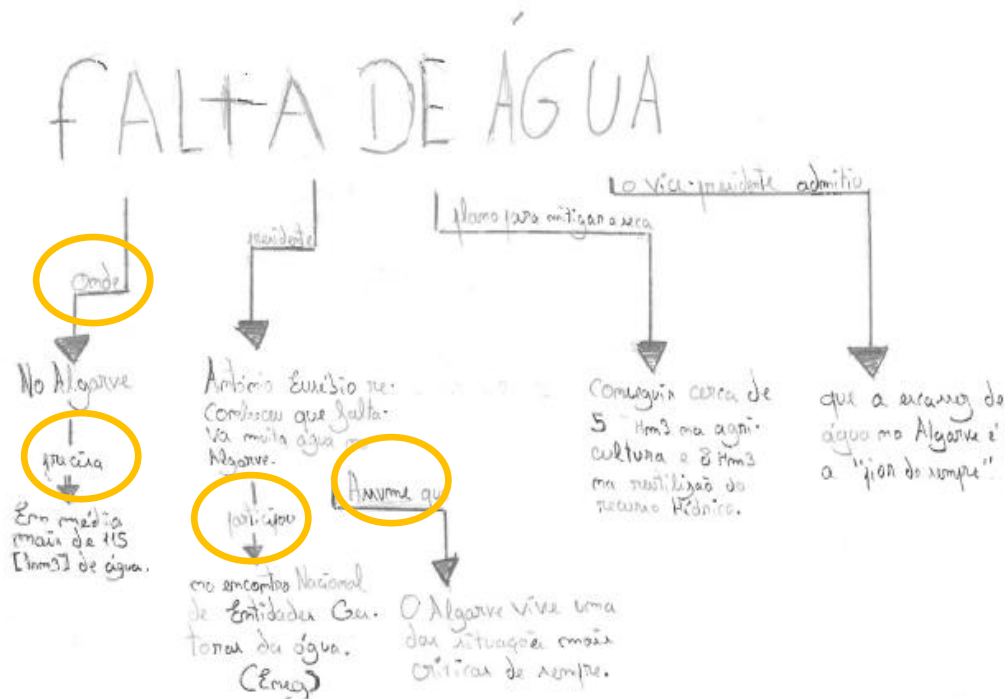 FALTA DE ÁGUA
Onde
No Algarve
precisa
Em média
mais de 115
[hm3] de água.
presidente
António Eusébio re-
conheceu que falta-
va muita água no
Algarve.
participou
no encontro Nacional
de Entidades Ges-
toras da água.
(Eneg)
Assume que
O Algarve vive uma
das situações mais
críticas de sempre.
plano para mitigar a seca
Conseguir cerca de
5 Hm3 na agri-
cultura e 8 Hm3
na reutilização do
recurso Hídrico.
o vice-presidente admitiu
que a escassez de
água no Algarve é
a "pior do sempre"